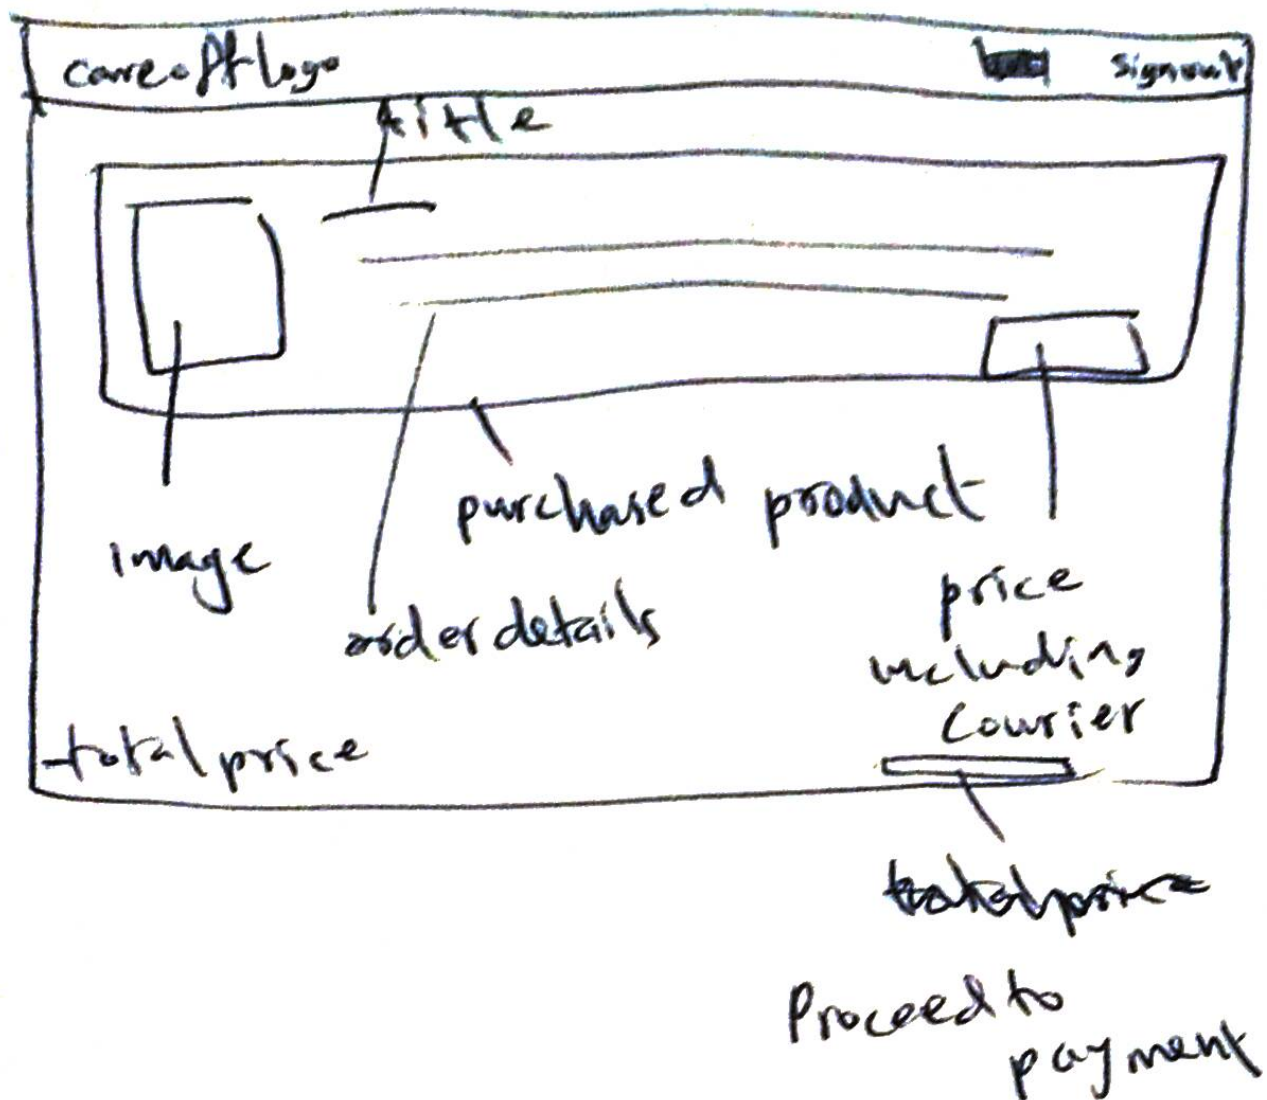 careoff logo signout
title
purchased product
image
order details
price
including
courier
total price
total price
Proceed to
payment